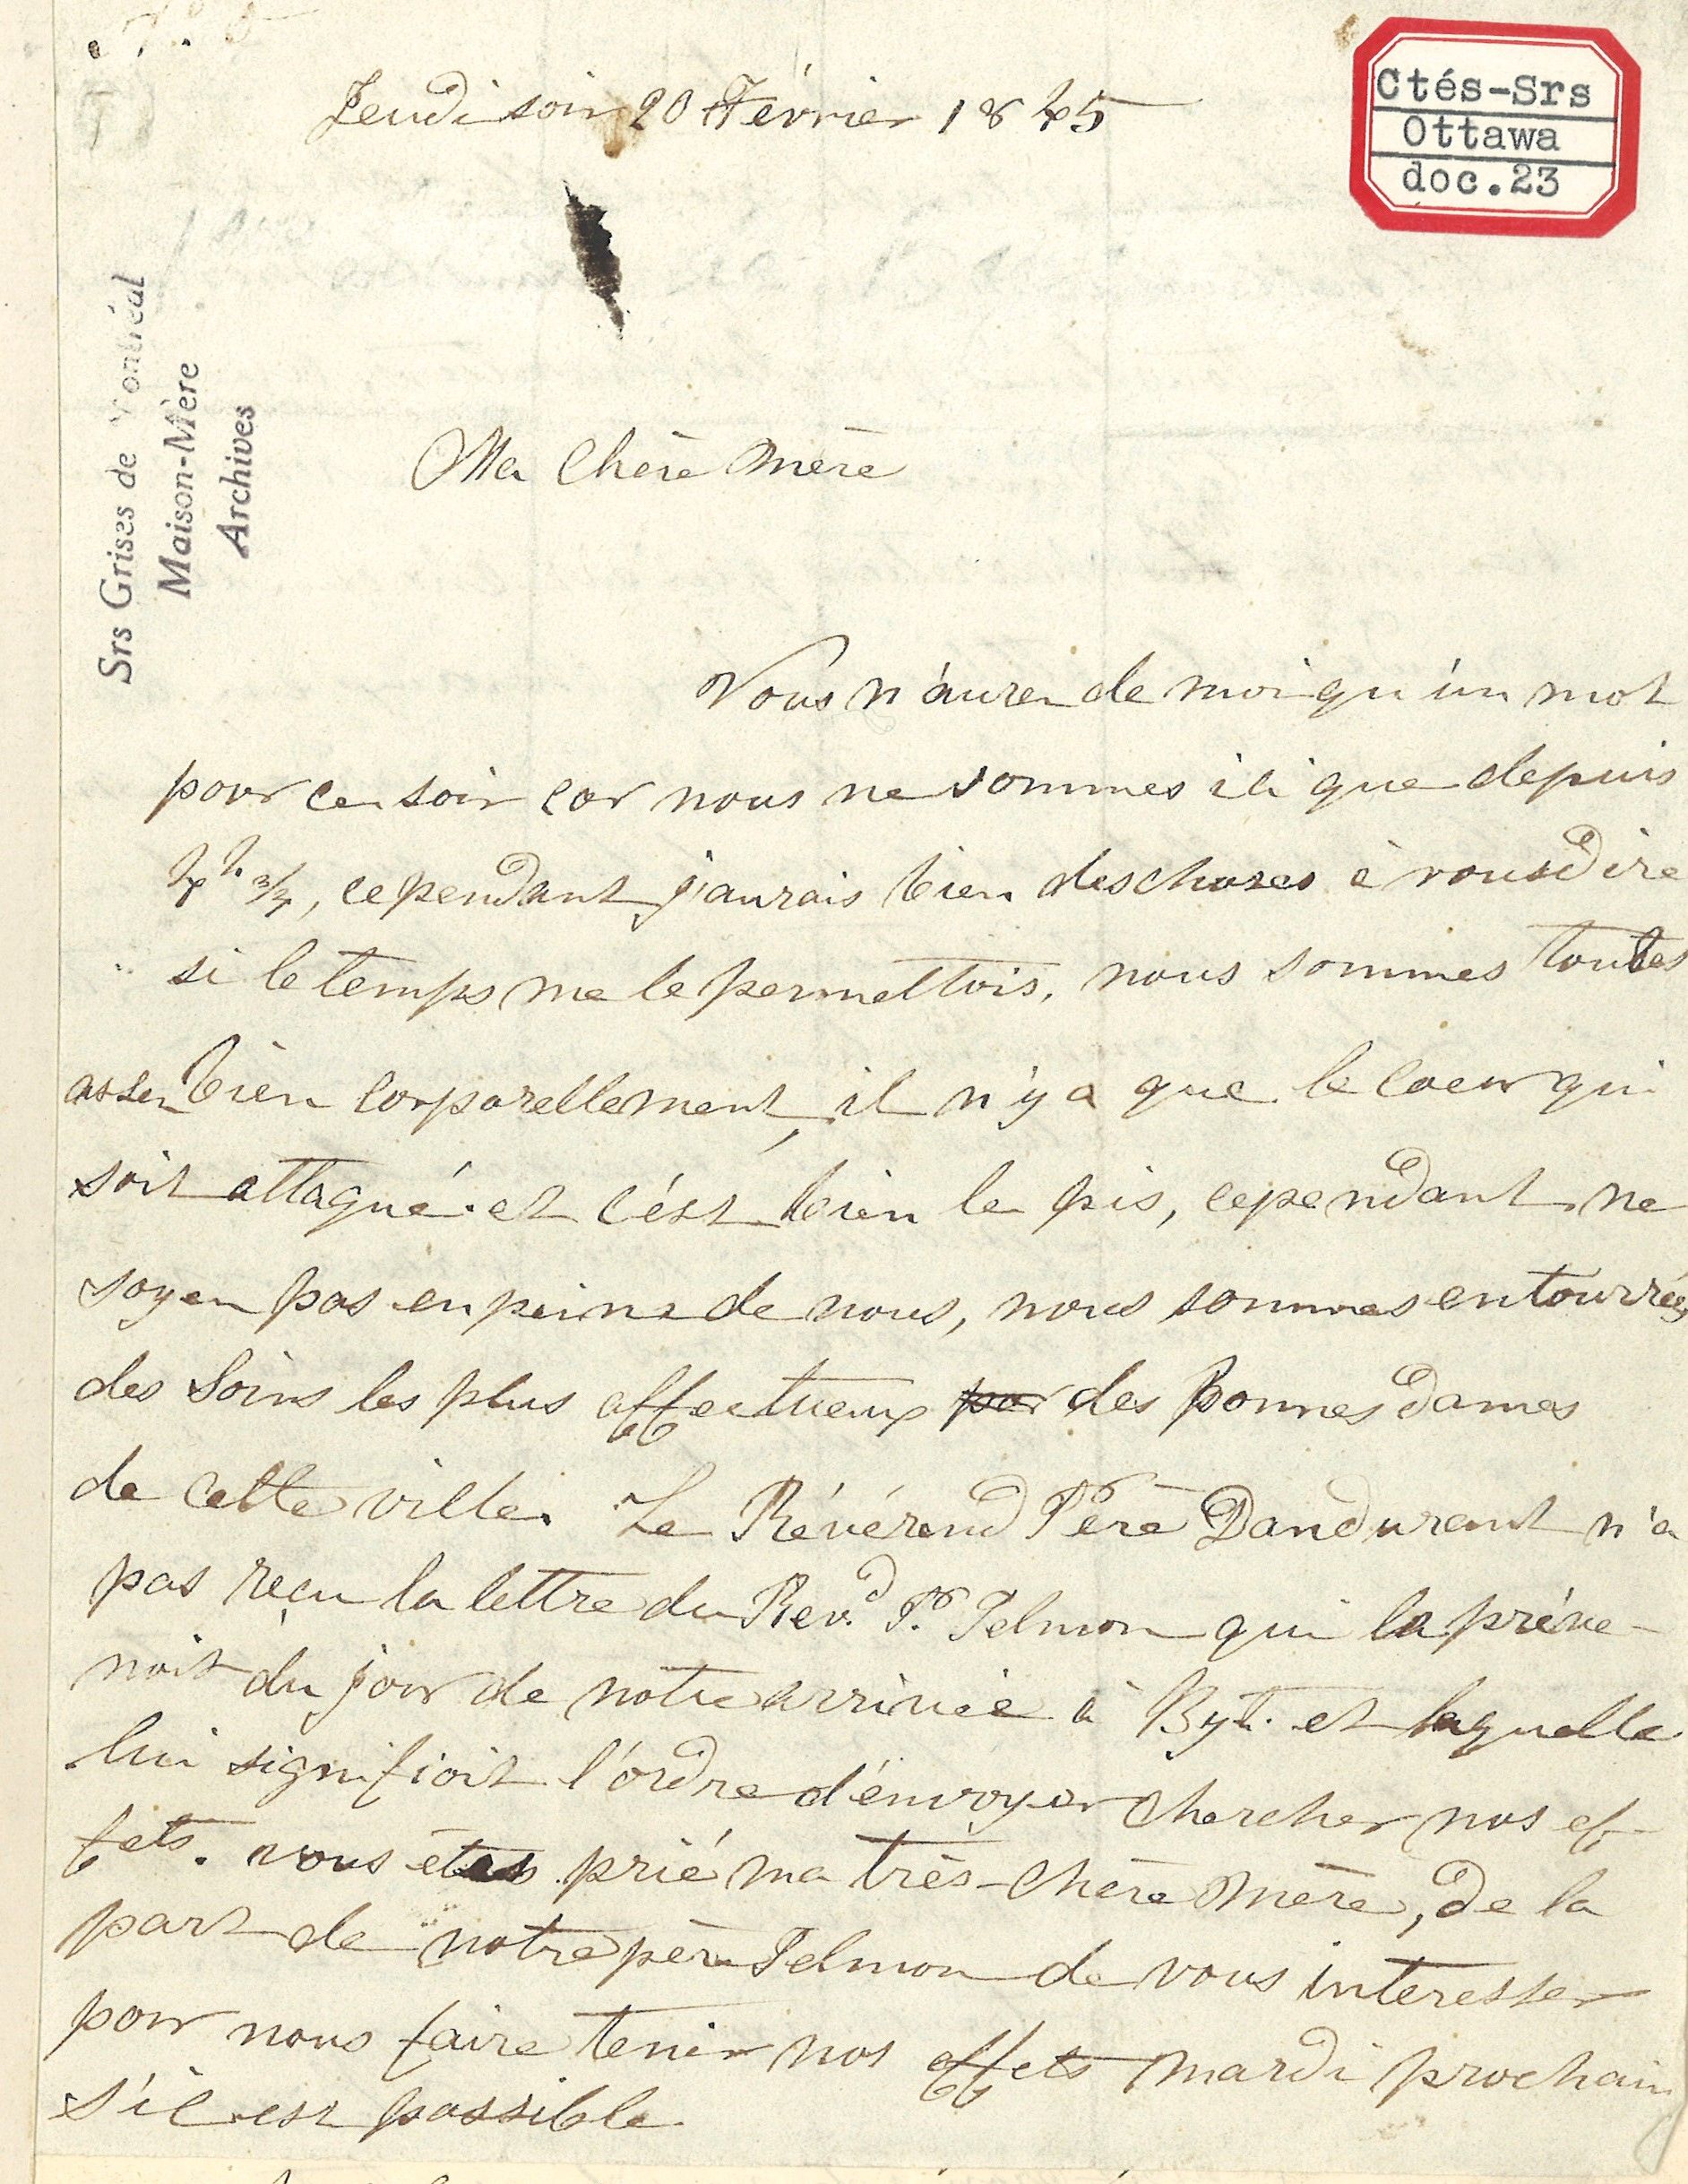 Jeudi soir 20 Février 1845
Ctés-Srs
Ottawa
doc.23
Srs Grises de Montréal
Maison-Mère
Archives
Ma Chère Mère
Vous n'aurez de moi qu'un mot
pour ce soir car nous ne sommes ici que depuis
4h 3/4, cependant j'aurais bien des choses à vous dire
si le temps me le permettois, nous sommes toutes
assez bien corporellement, il n'y a que le coeur qui
soit attaqué et c'est bien le pis, cependant ne
soyez pas en peine de nous, nous sommes entourrées
des soins les plus affectueux par des bonnes dames
de cette ville. Le Révérend Père Dandurant n'a
pas reçu la lettre du Rev.d P. Telmon qui la préve-
noit du jour de notre arrivée à Byt. et laquelle
lui signifioit l'ordre d'envoyer chercher nos ef-
fets. vous êtes prié ma très-chère Mère, de la
part de notre père Telmon de vous interesser
pour nous faire tenir nos effets mardi prochain
s'il est possible